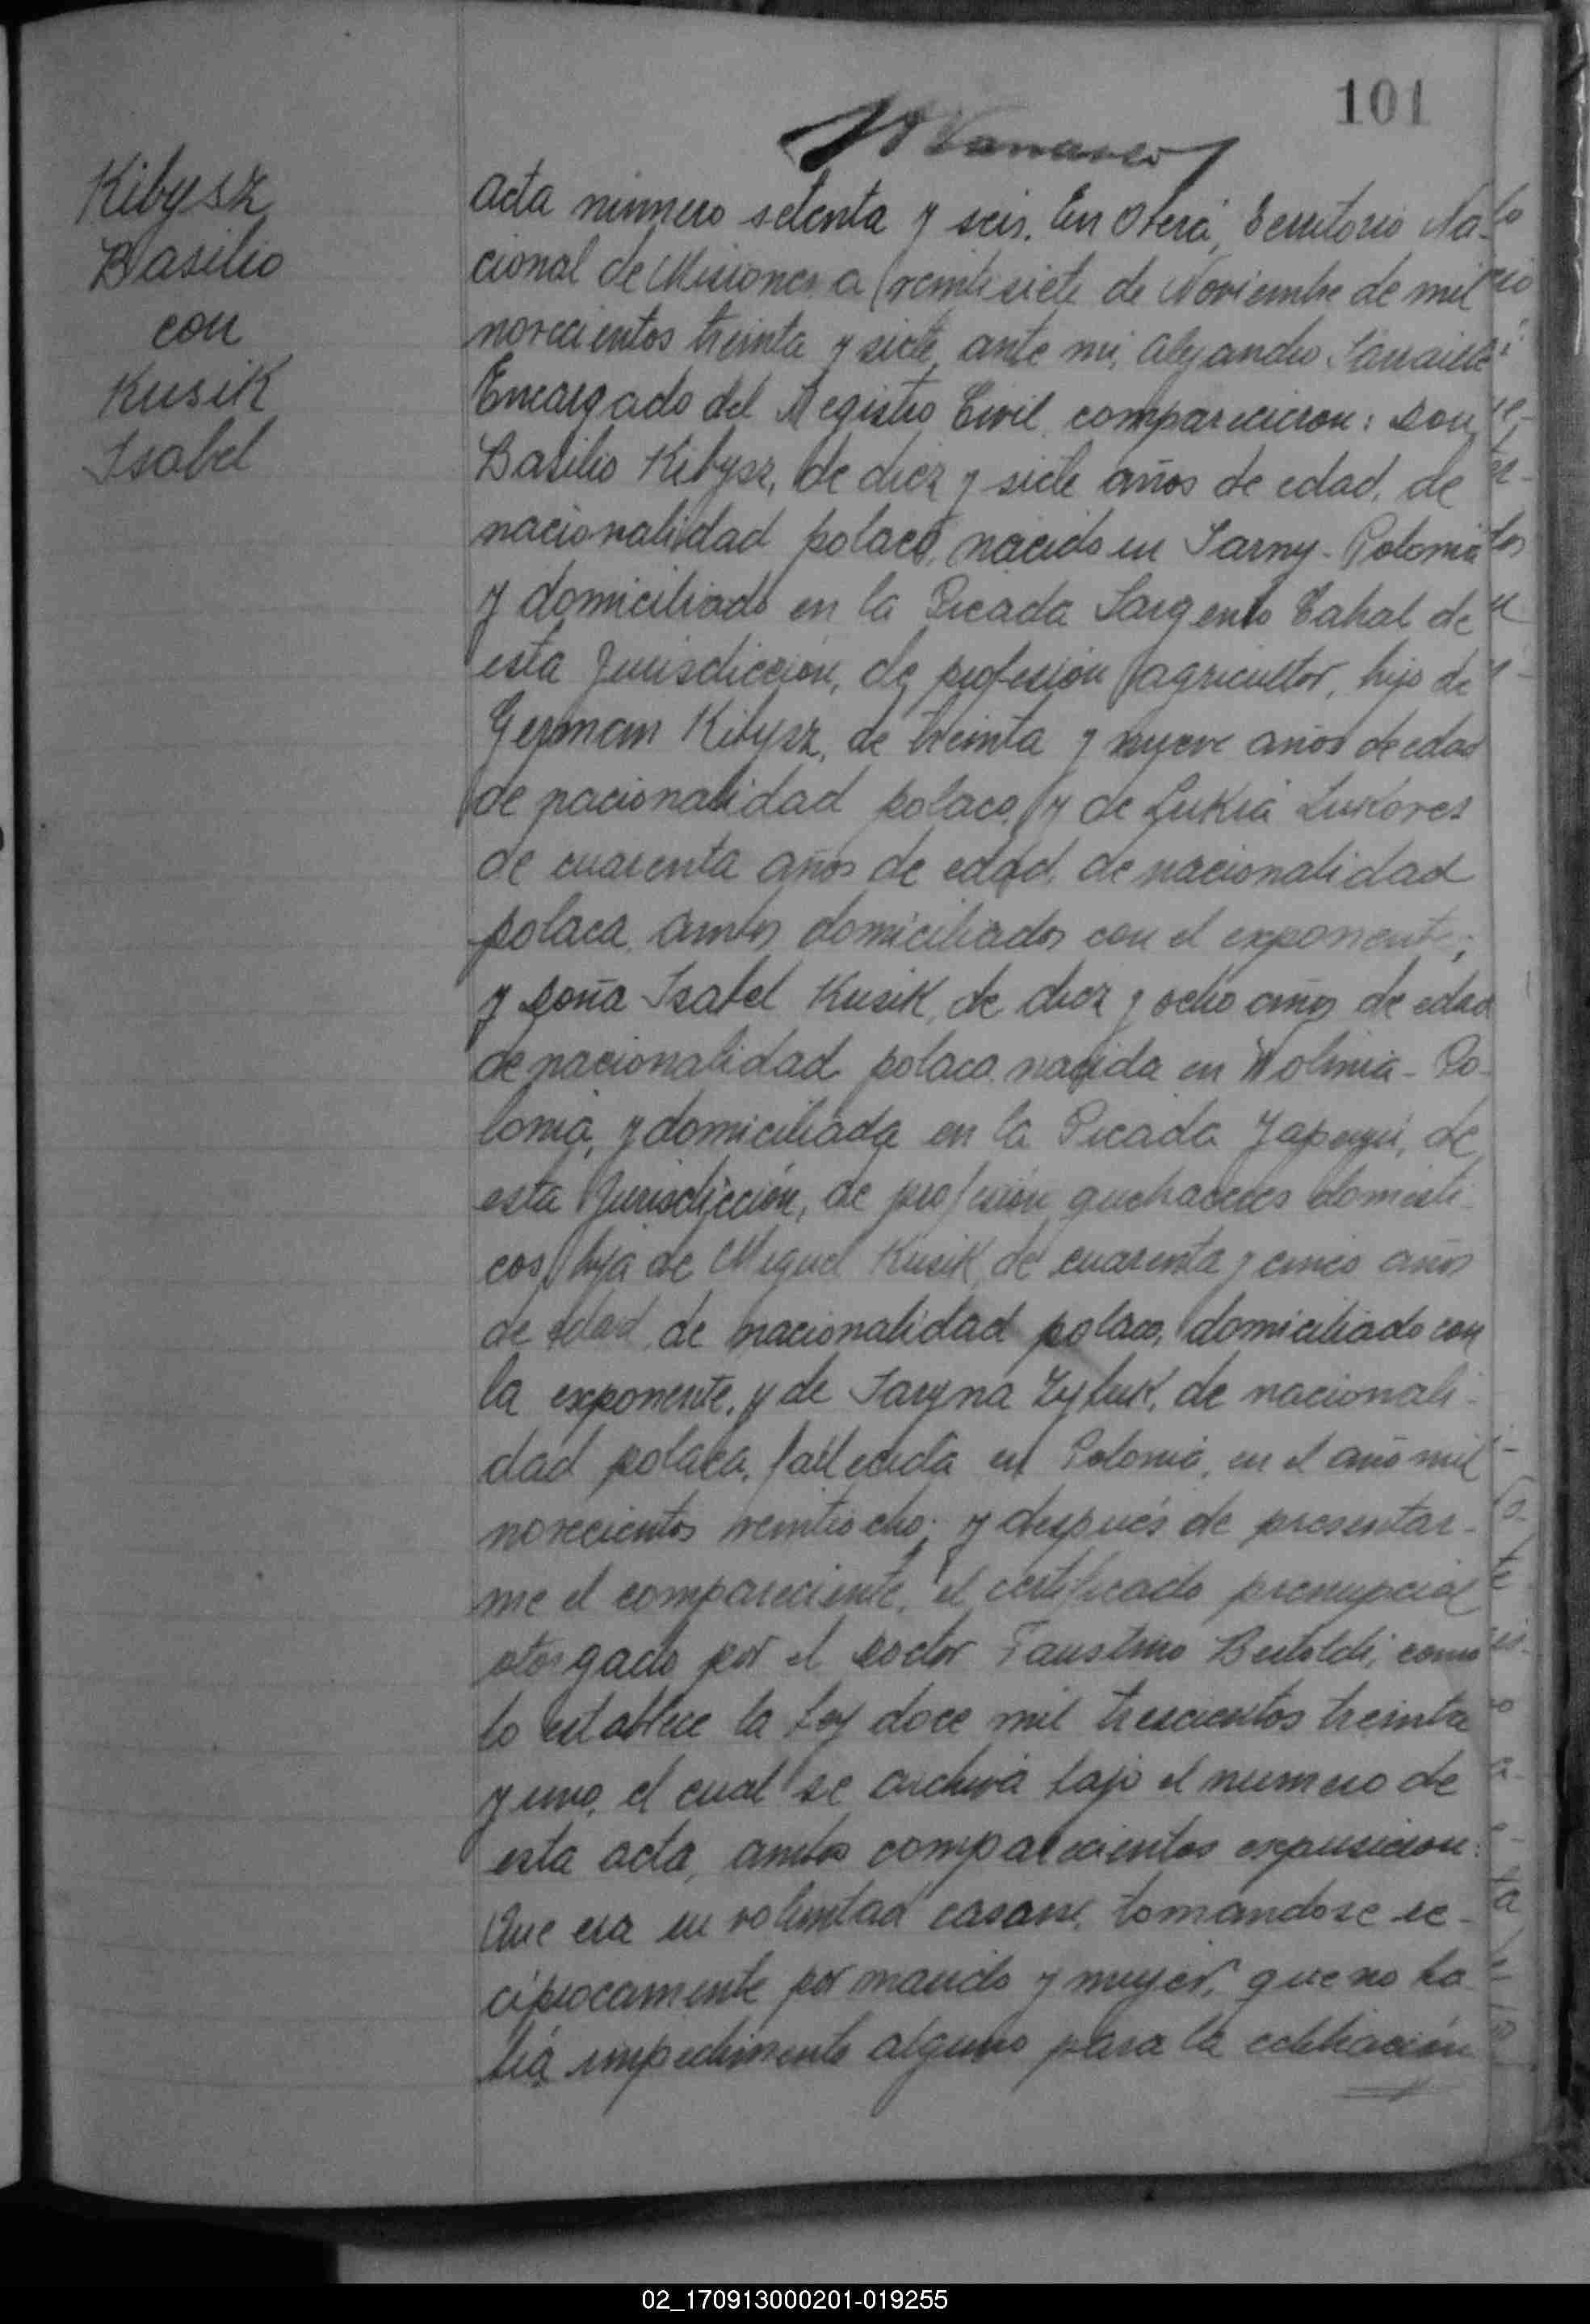 101
Kibysz
Basilio
con
Kusik
Isabel
Acta número setenta y seis. En Oberá, Territorio Na-
cional de Misiones a veintisiete de Noviembre de mil
novecientos treinta y siete, ante mi, Alejandro
Encargado del Registro Civil, comparecieron: Don
Basilio Kibysz, de diez y siete años de edad, de
nacionalidad polaco, nacido en Sarny - Polonia
y domiciliado en la Picada Sargento Cabral de
esta Jurisdicción, de profesión agricultor, hijo de
German Kibysz, de treinta y nueve años de edad
de nacionalidad polaco, y de Lukia
de cuarenta años de edad, de nacionalidad
polaca, ambos domiciliados con el exponente;
y Doña Isabel Kusik, de diez y ocho años de edad
de nacionalidad polaca, nacida en Wolinia - Po-
lonia, y domiciliada en la Picada Yapeyú, de
esta Jurisdicción, de profesión quehaceres domésti-
cos, hija de Miguel Kusik, de cuarenta y cinco años
de edad, de nacionalidad polaco, domiciliado con
la exponente, y de Taryna, de nacionali-
dad polaca, fallecida en Polonia, en el año mil
novecientos veintiocho; y después de presentar-
me el compareciente, el certificado prenupcial
otorgado por el Doctor Faustino Bertoldi, como
lo establece la Ley doce mil trescientos treinta
y uno, el cual se archiva bajo el numero de
esta acta, ambos comparecientes expusieron:
Que era su voluntad casarse, tomandose re-
ciprocamente por marido y mujer, que no ha-
bia impedimento alguno para la celebración
02_170913000201-019255